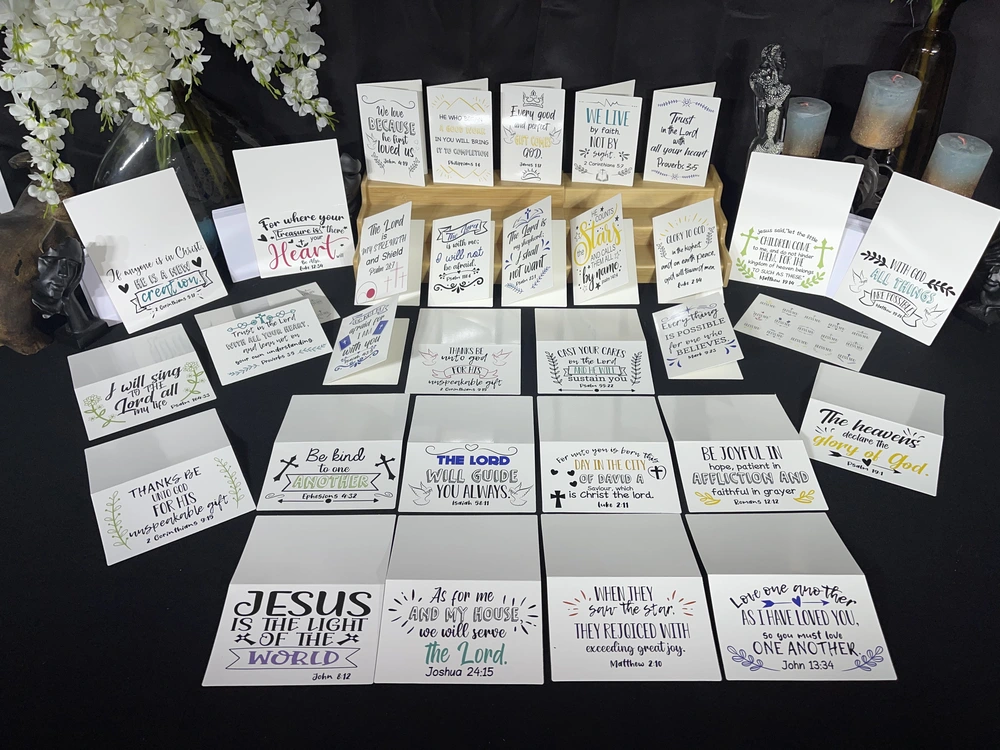 We love
BECAUSE
he first
loved us
John 4:19
HE WHO
A GOOD WORK
IN YOU WILL BRING
IT TO COMPLETION
Philippians 1:6
Every good
and perfect
GOD.
James 1:17
WE LIVE
by faith,
NOT BY
sight.
2 Corinthians 5:7
Trust
in the Lord
with
all your heart
Proverbs 3:5
If anyone is in Christ
HE IS A NEW
creation
2 Corinthians 5:17
For where your
Treasure is there
your
Heart
will
be also
Luke 12:34
The Lord
is my STRENGTH
and Shield
Psalm 28:7
The Lord
is with me;
I will not
be afraid.
Psalm 118:6
The Lord is
my shepherd,
I shall
not want
Psalm 23:1
HE COUNTS
the
Stars
AND CALLS
THEM ALL
by name.
GLORY TO GOD
in the highest,
and on earth peace,
good will towards men
Luke 2:14
Jesus said, "let the little
CHILDREN COME
to me, and do not hinder
THEM, FOR THE
kingdom of heaven belongs
TO SUCH AS THESE."
Matthew 19:14
WITH GOD
ALL THINGS
ARE POSSIBLE
I will sing
TO THE
Lord all
my life
Psalm 104:33
Trust in the Lord
WITH ALL YOUR HEART,
and lean not on
your own understanding
Proverbs 3:5
afraid for
I AM
with you
THANKS BE
unto god
FOR HIS
unspeakable gift
2 Corinthians 9:15
CAST YOUR CARES
on the Lord
AND HE WILL
sustain you
Psalm 55:22
Everything
IS POSSIBLE
for one who
BELIEVES.
Mark 9:23
The heavens
declare the
glory of God.
Psalm 19:1
THANKS BE
UNTO GOD
FOR HIS
unspeakable gift
2 Corinthians 9:15
Be kind
to one
ANOTHER
Ephesians 4:32
THE LORD
WILL GUIDE
YOU ALWAYS.
Isaiah 58:11
For unto you is born this
DAY IN THE CITY
OF DAVID A
Saviour, which
is Christ the lord.
Luke 2:11
BE JOYFUL IN
hope, patient in
AFFLICTION AND
faithful in grayer
Romans 12:12
JESUS
IS THE LIGHT
OF THE
WORLD
John 8:12
As for me
AND MY HOUSE
we will serve
the Lord.
Joshua 24:15
WHEN THEY
saw the star,
THEY REJOICED WITH
exceeding great joy.
Matthew 2:10
Love one another
AS I HAVE LOVED YOU,
so you must love
ONE ANOTHER.
John 13:34